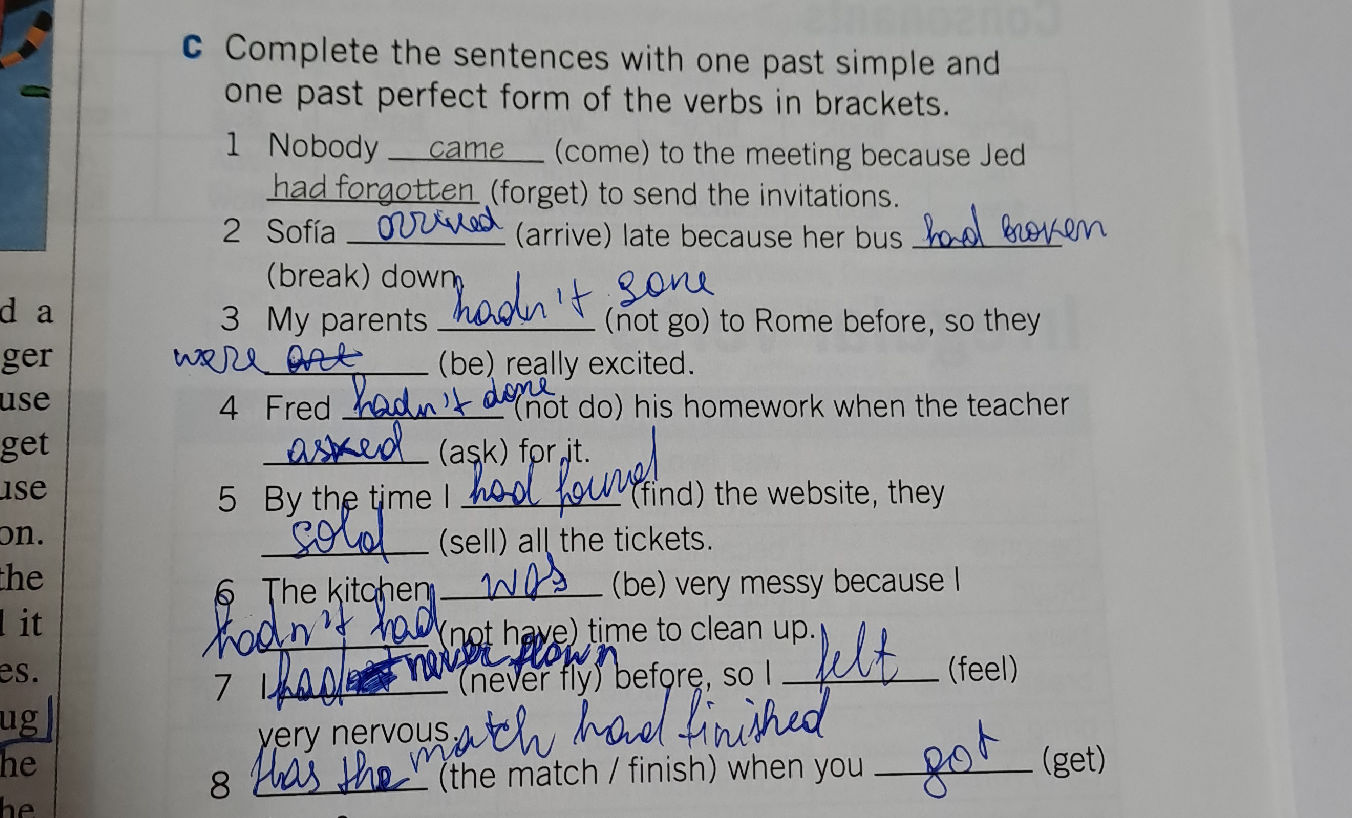 C Complete the sentences with one past simple and
one past perfect form of the verbs in brackets.
1 Nobody came (come) to the meeting because Jed
had forgotten (forget) to send the invitations.
2 Sofía arrived (arrive) late because her bus had broken
(break) down.
3 My parents hadn't gone (not go) to Rome before, so they
were (be) really excited.
4 Fred hadn't done (not do) his homework when the teacher
asked (ask) for it.
5 By the time I had found (find) the website, they
sold (sell) all the tickets.
6 The kitchen was (be) very messy because I
hadn't had (not have) time to clean up.
7 I had never flown (never fly) before, so I felt (feel)
very nervous.
8 Has the match had finished (the match / finish) when you got (get)
d a
ger
use
get
use
on.
the
l it
es.
ug
he